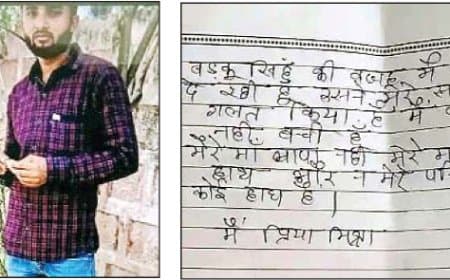 बडकू सिहुं की वजह में
दे रही हू उसने मेरे
गलत किया है मैं
नही बची हैं
मेरे माँ बाप नही मेरे
हाथ और न मेरे
कोई हाथ है।
मैं प्रिया मिश्रा